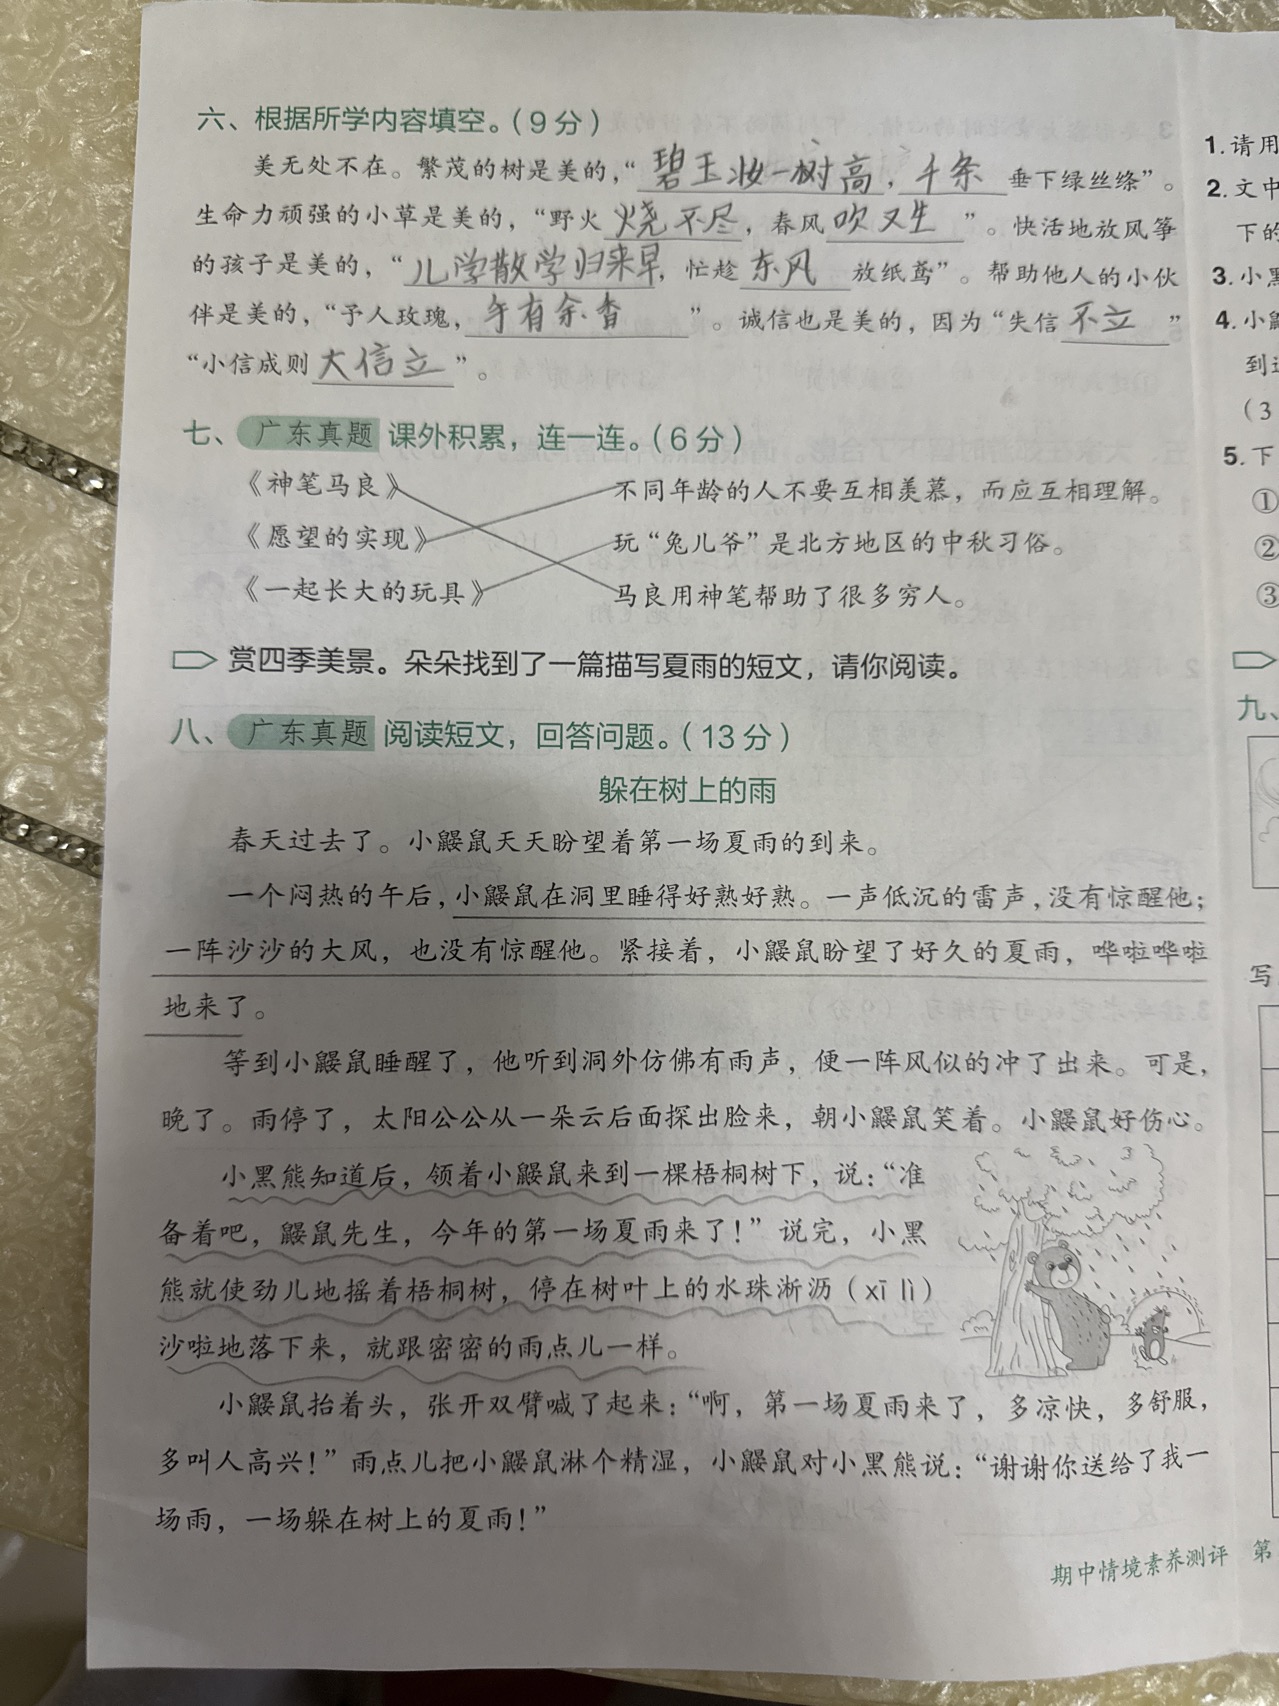 六、根据所学内容填空。（9分）
美无处不在。繁茂的树是美的，“碧玉妆一树高，千条垂下绿丝绦”。
生命力顽强的小草是美的，“野火烧不尽，春风吹又生”。快活地放风筝
的孩子是美的，“儿学散学归来早，忙趁东风放纸鸢”。帮助他人的小伙
伴是美的，“予人玫瑰，手有余香”。诚信也是美的，因为“失信不立”
“小信成则大信立”。
七、广东真题 课外积累，连一连。（6分）
《神笔马良》 不同年龄的人不要互相羡慕，而应互相理解。
《愿望的实现》 玩“兔儿爷”是北方地区的中秋习俗。
《一起长大的玩具》 马良用神笔帮助了很多穷人。
赏四季美景。朵朵找到了一篇描写夏雨的短文，请你阅读。
八、广东真题 阅读短文，回答问题。（13分）
躲在树上的雨
春天过去了。小鼹鼠天天盼望着第一场夏雨的到来。
一个闷热的午后，小鼹鼠在洞里睡得好熟好熟。一声低沉的雷声，没有惊醒他；
一阵沙沙的大风，也没有惊醒他。紧接着，小鼹鼠盼望了好久的夏雨，哗啦哗啦
地来了。
等到小鼹鼠睡醒了，他听到洞外仿佛有雨声，便一阵风似的冲了出来。可是，
晚了。雨停了，太阳公公从一朵云后面探出脸来，朝小鼹鼠笑着。小鼹鼠好伤心。
小黑熊知道后，领着小鼹鼠来到一棵梧桐树下，说：“准
备着吧，鼹鼠先生，今年的第一场夏雨来了！”说完，小黑
熊就使劲儿地摇着梧桐树，停在树叶上的水珠淅沥（xī lì）
沙啦地落下来，就跟密密的雨点儿一样。
小鼹鼠抬着头，张开双臂喊了起来：“啊，第一场夏雨来了，多凉快，多舒服，
多叫人高兴！”雨点儿把小鼹鼠淋个精湿，小鼹鼠对小黑熊说：“谢谢你送给了我一
场雨，一场躲在树上的夏雨！”
期中情境素养测评 第
1.请用
2.文中
下的
3.小黑
4.小鼹
到过
（3
5.下
①
②
③
九、
写